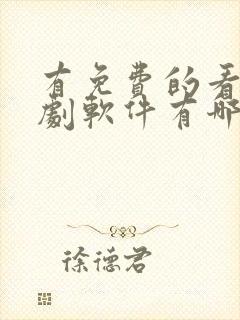 有免費的看
劇軟件有哪
徐德君